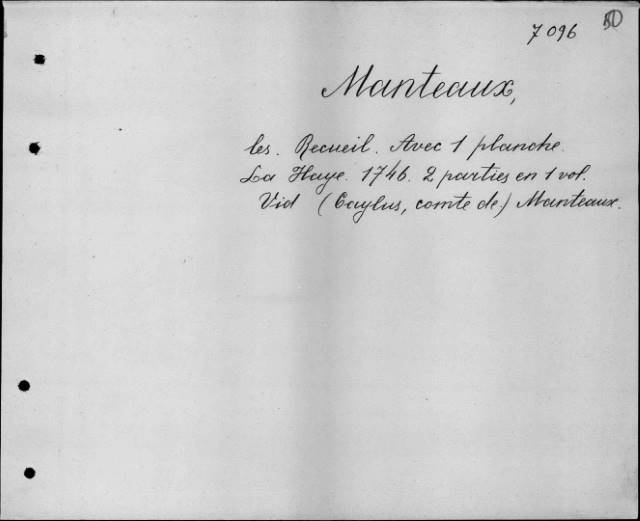 7096
Manteaux,
les. Recueil. Avec 1 planche.
La Haye. 1746. 2 parties en 1 vol.
Vid (Caylus, comte de) Manteaux.